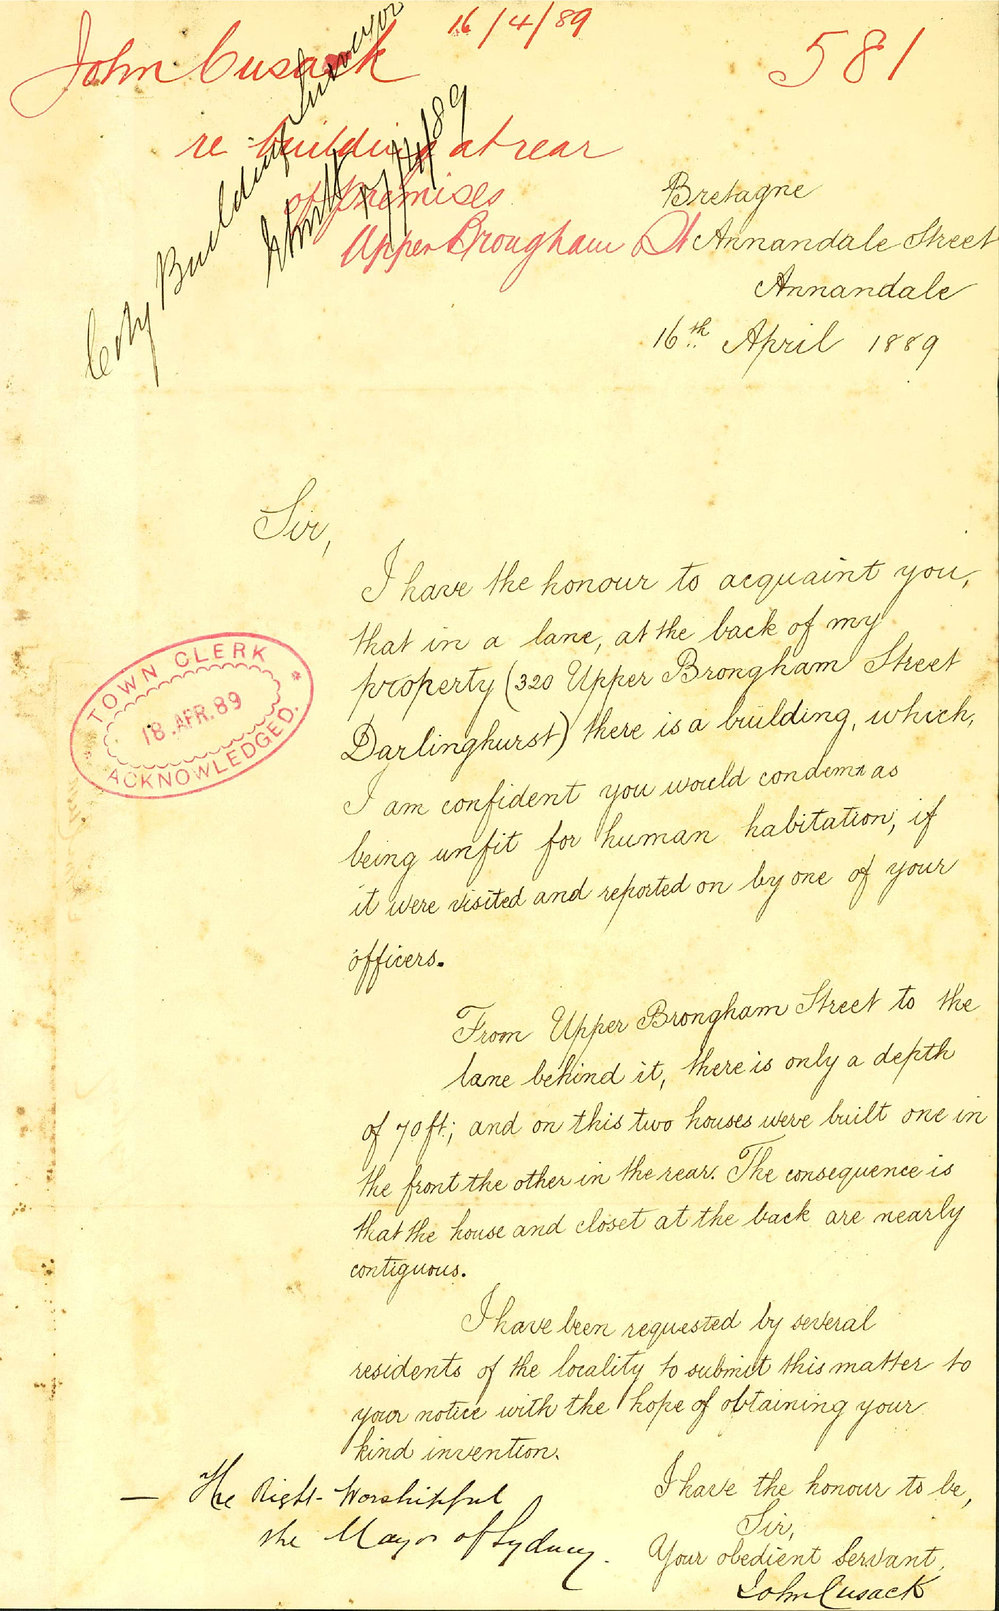 John Cusack 16/4/89
581
re building at rear
of premises
Upper Brougham St
City Building Surveyor
17/4/89
Bretagne
Annandale Street
Annandale
16th April 1889
Sir,
I have the honour to acquaint you,
that in a lane, at the back of my
property (320 Upper Brongham Street
Darlinghurst) there is a building, which,
I am confident you would condemn as
being unfit for human habitation, if
it were visited and reported on by one of your
officers.
TOWN CLERK
18. APR. 89
ACKNOWLEDGED.
From Upper Brongham Street to the
lane behind it, there is only a depth
of 70 ft; and on this two houses were built one in
the front the other in the rear. The consequence is
that the house and closet at the back are nearly
contiguous.
I have been requested by several
residents of the locality to submit this matter to
your notice with the hope of obtaining your
kind invention.
I have the honour to be,
Sir,
Your obedient Servant,
John Cusack
— The Right Worshipful
the Mayor of Sydney.